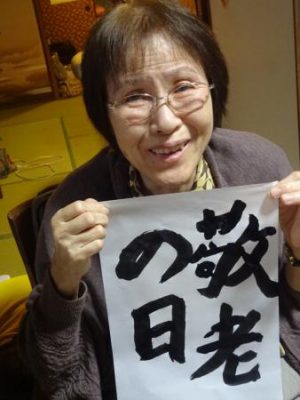 敬老
の日